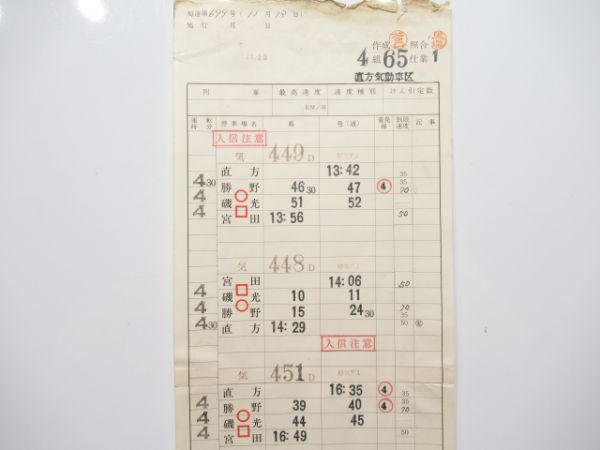 達第699号(11月19日)
施行 月 日
作成 照合
4組65仕業1
直方気動車区
列 車 最高速度 速度種別 けん引定数
KM/H
運転時分 停車場名 着 発(通) 着発線 制限速度 記事
入信注意
気 449D
直方 13:42 35
4 30 勝野 46 30 47 ④ 35 70
4 磯光 51 52
4 宮田 13:56 50
気 448D
宮田 14:06 50
4 磯光 10 11
4 勝野 15 24 30 70 35
4 30 直方 14:29 50
入信注意
気 451D
直方 16:35 ④ 35
4 勝野 39 40 ④ 35 70
4 磯光 44 45
4 宮田 16:49 50